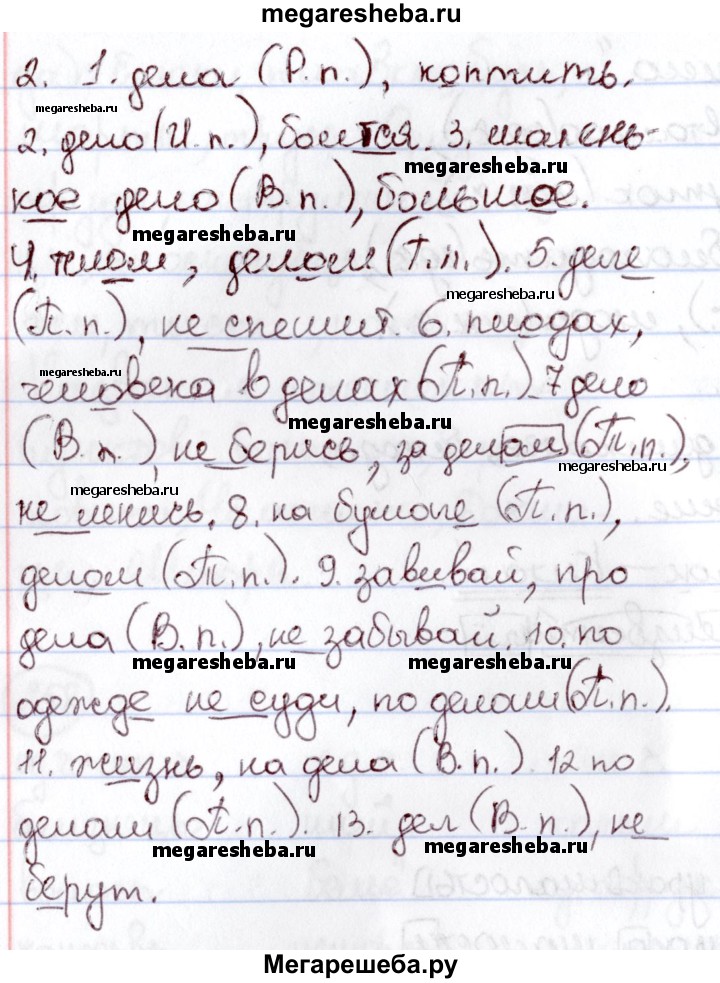 megaresheba.ru
2. 1. дела (Р.п.), коптить.
megaresheba.ru
2. дело (И.п.), боится. 3. малень-
megaresheba.ru
кое дело (В.п.), большое.
megaresheba.ru
4. телом, делом (Т.п.). 5. деле
megaresheba.ru
(П.п.), не спешит. 6. плодах,
megaresheba.ru
человека в делах (П.п.). 7 дело
megaresheba.ru
(В.п.) не берись, за делом (Т.п.),
megaresheba.ru
megaresheba.ru
не ленись. 8. на бумаге (П.п.),
делом (Т.п.). 9. завивай, про
дела (В.п.), не забывай. 10. по
megaresheba.ru megaresheba.ru
одежде не суди, по делам (П.п.).
11. жизнь, на дела (В.п.). 12 по
делам (П.п.). 13. дел (В.п.), не
megaresheba.ru megaresheba.ru
берут.
Мегарешеба.ру